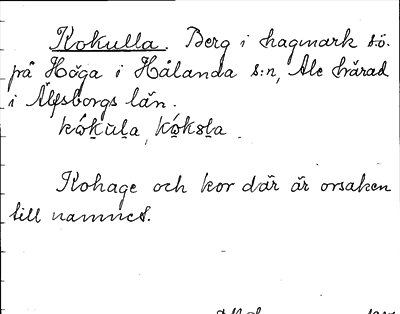 Kokulla. Berg i hagmark s.ö.
på Höga i Hålanda s:n, Ale härad
i Älvsborgs län.
Kohage och kor där är orsaken
till namnet.